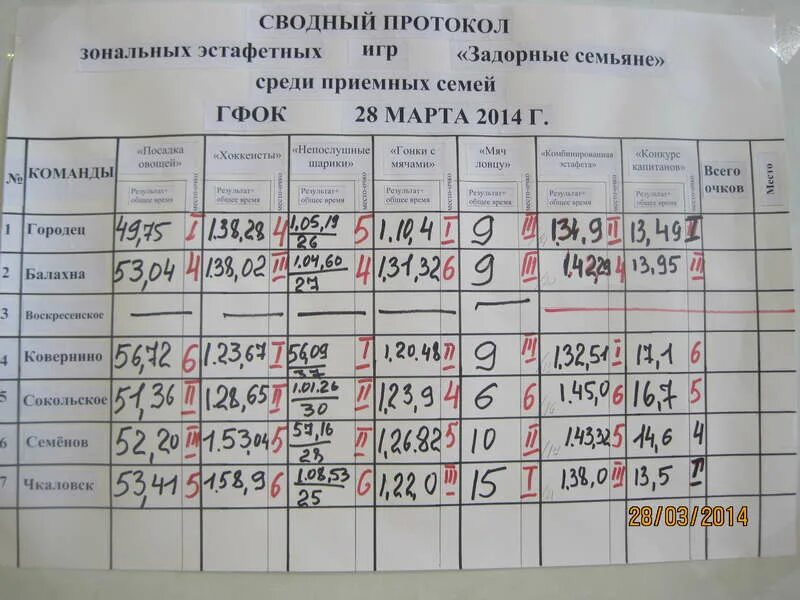 СВОДНЫЙ ПРОТОКОЛ
зональных эстафетных игр «Задорные семьяне»
среди приемных семей
ГФОК 28 МАРТА 2014 Г.
№ КОМАНДЫ «Посадка овощей» «Хоккеисты» «Непослушные шарики» «Гонки с мячами» «Мяч ловцу» «Комбинированная эстафета» «Конкурс капитанов» Всего очков Место
Результат+ общее время место-очко Результат+ общее время место-очко Результат+ общее время место-очко Результат+ общее время место-очко Результат+ общее время место-очко Результат+ общее время место-очко Результат+ общее время место-очко
1 Городец 49,75 I 1.38,28 4 1.05,19 26 5 1.10,4 I 9 III 1.34,9 II 13,49 I
2 Балахна 53,04 4 1.38,02 III 1.04,60 27 4 1,31,32 6 9 III 1.42,29 4 13,95 III
3 Воскресенское — — — — — —
4 Ковернино 56,72 6 1.23,67 I 56,09 37 I 1,20.48 II 9 III 1,32,51 I 17,1 6
5 Сокольское 51,36 II 1.28,65 II 1.01.26 30 II 1,23,9 4 6 6 1.45,0 6 16,7 5
6 Семёнов 52,20 III 1.53,04 5 57,16 23 II 1,26.82 5 10 II 1.43,32 5 14,6 4
7 Чкаловск 53,41 5 1.58,9 6 1.08,53 25 6 1,22,0 III 15 I 1.38,0 III 13,5
28/03/2014